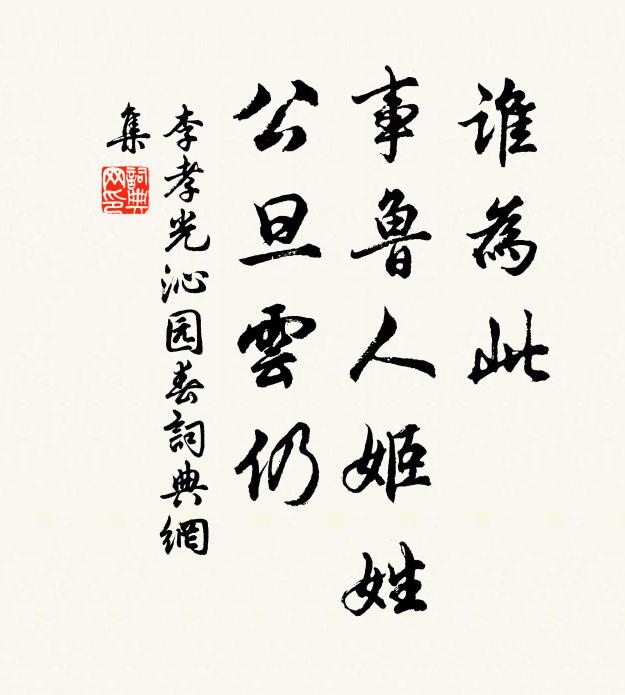 誰為此
事魯人姬姓
公旦雲仍
李孝光沁园春詞典網
集
詞典
网印